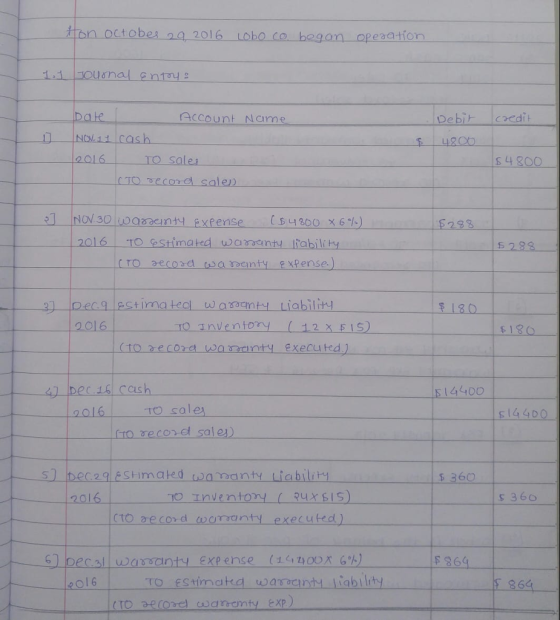 on october 29 2016 Lobo co began operation
1.1 Journal Entry:
Date Account Name Debit credit
1) Nov.11 cash $ 4800
2016 TO sales $4800
(TO record sales)
2] NOV 30 Warranty Expense ($4800 x 6%) $288
2016 TO Estimated warranty liability $288
(TO record warranty expense)
3] Dec 9 Estimated Warranty Liability $180
2016 TO Inventory (12 x $15) $180
(TO record warranty executed)
4] Dec 16 cash $14400
2016 TO sales $14400
(TO record sales)
5] Dec 29 Estimated Warranty Liability $ 360
2016 TO Inventory (24x$15) $ 360
(TO record warranty executed)
6] Dec 31 Warranty Expense (14400x 6%) $864
2016 TO Estimated warranty liability $ 864
(TO record warranty exp)